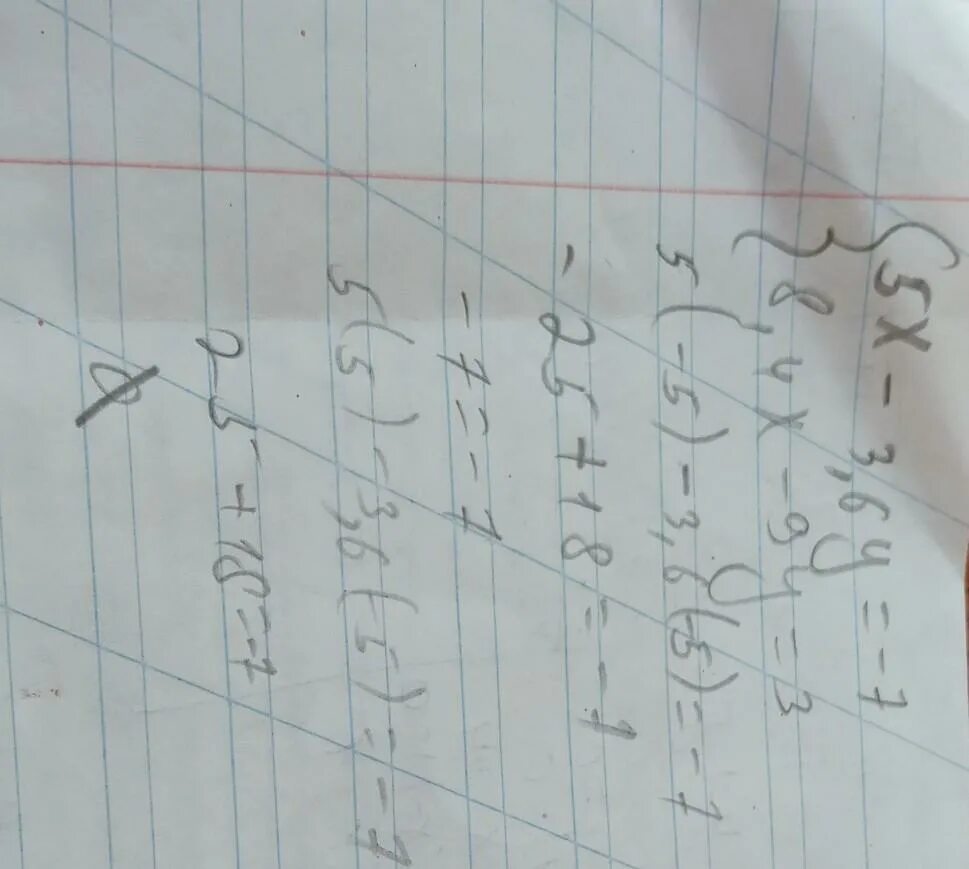 { 5x - 3,6y = -7
{ 8,4x - 9y = 3
5(-5) - 3,6(-5) = -7
-25 + 18 = -7
-7 = -7
5(5) - 3,6(-5) = -7
25 + 18 = -7